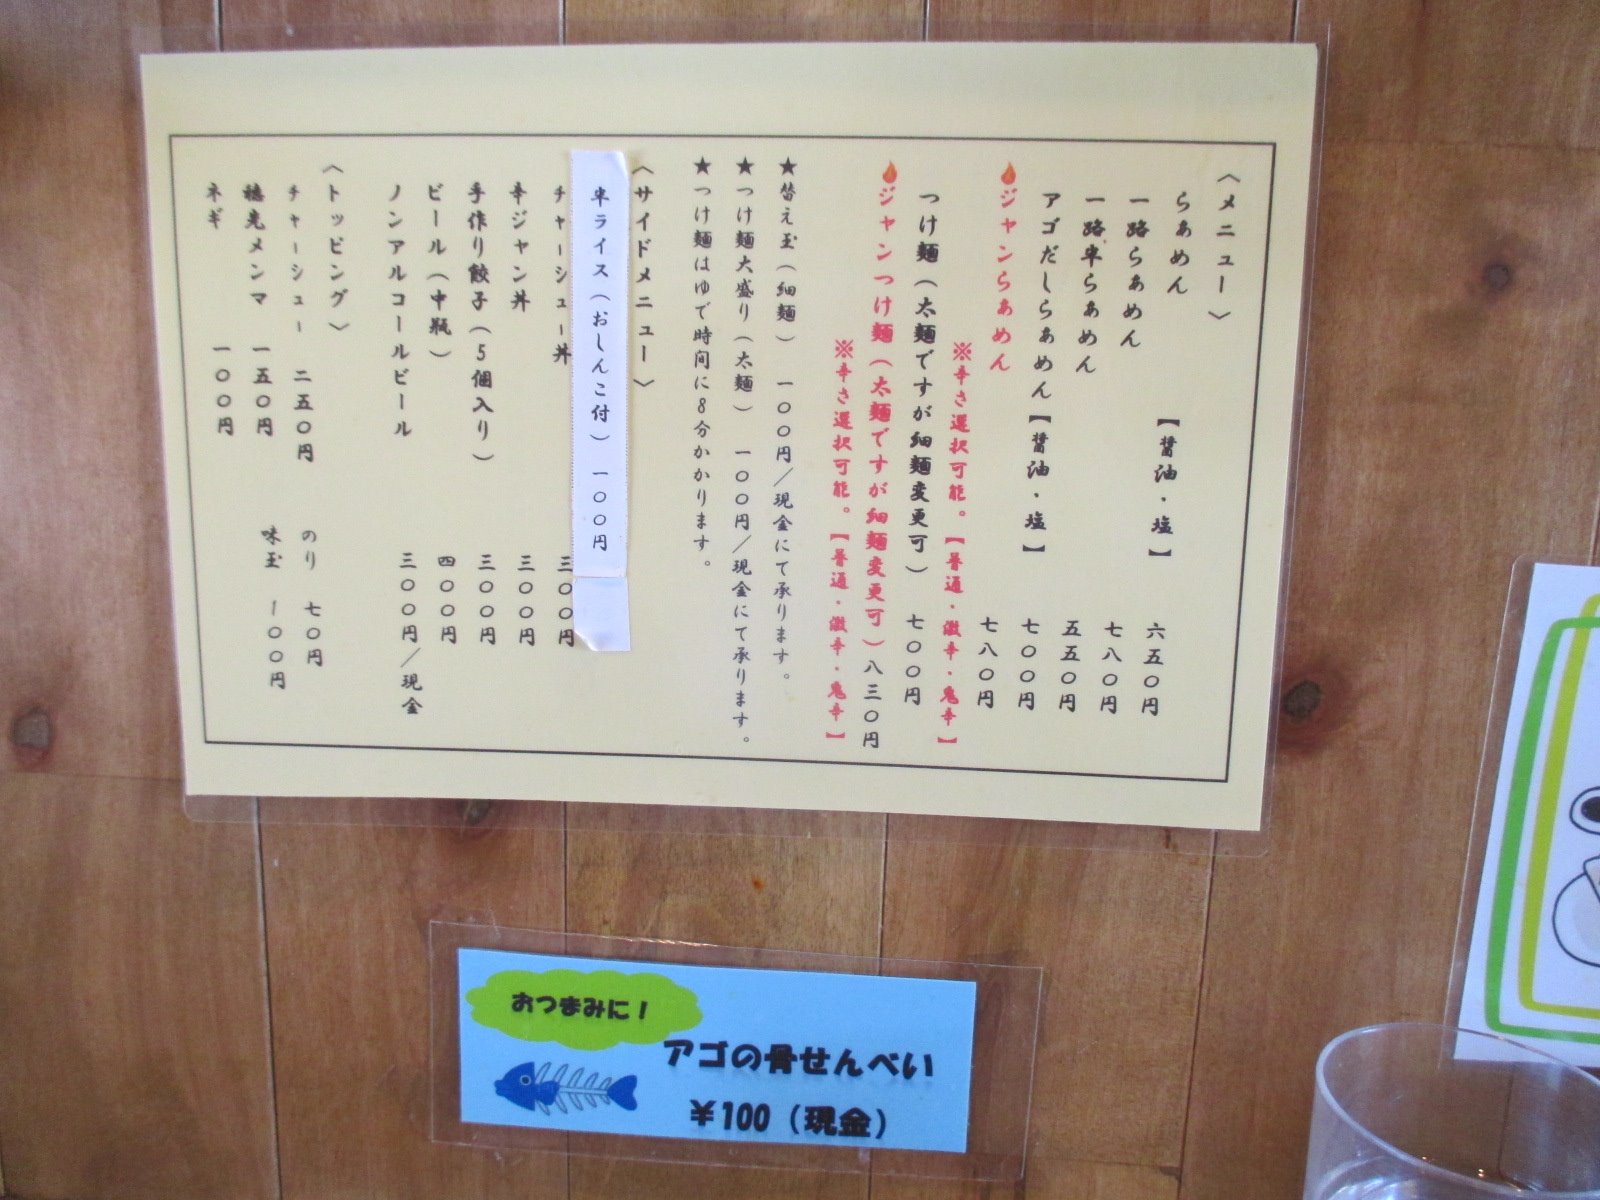 〈メニュー〉
らぁめん 【醤油・塩】 六五〇円
一路らぁめん 七八〇円
一路辛らぁめん 五五〇円
アゴだしらぁめん【醤油・塩】 七〇〇円
ジャンらぁめん 七八〇円
※辛さ選択可能。【普通・激辛・鬼辛】
つけ麺（太麺ですが細麺変更可） 七〇〇円
ジャンつけ麺（太麺ですが細麺変更可）八三〇円
※辛さ選択可能。【普通・激辛・鬼辛】
★替え玉（細麺） 一〇〇円／現金にて承ります。
★つけ麺大盛り（太麺） 一〇〇円／現金にて承ります。
★つけ麺はゆで時間に8分かかります。
〈サイドメニュー〉
半ライス（おしんこ付） 一〇〇円
チャーシュー丼 三〇〇円
辛ジャン丼 三〇〇円
手作り餃子（5個入り） 三〇〇円
ビール（中瓶） 四〇〇円
ノンアルコールビール 三〇〇円／現金
〈トッピング〉
チャーシュー 二五〇円 のり 七〇円
穂先メンマ 一五〇円 味玉 一〇〇円
ネギ 一〇〇円
おつまみに！
アゴの骨せんべい
￥100（現金）